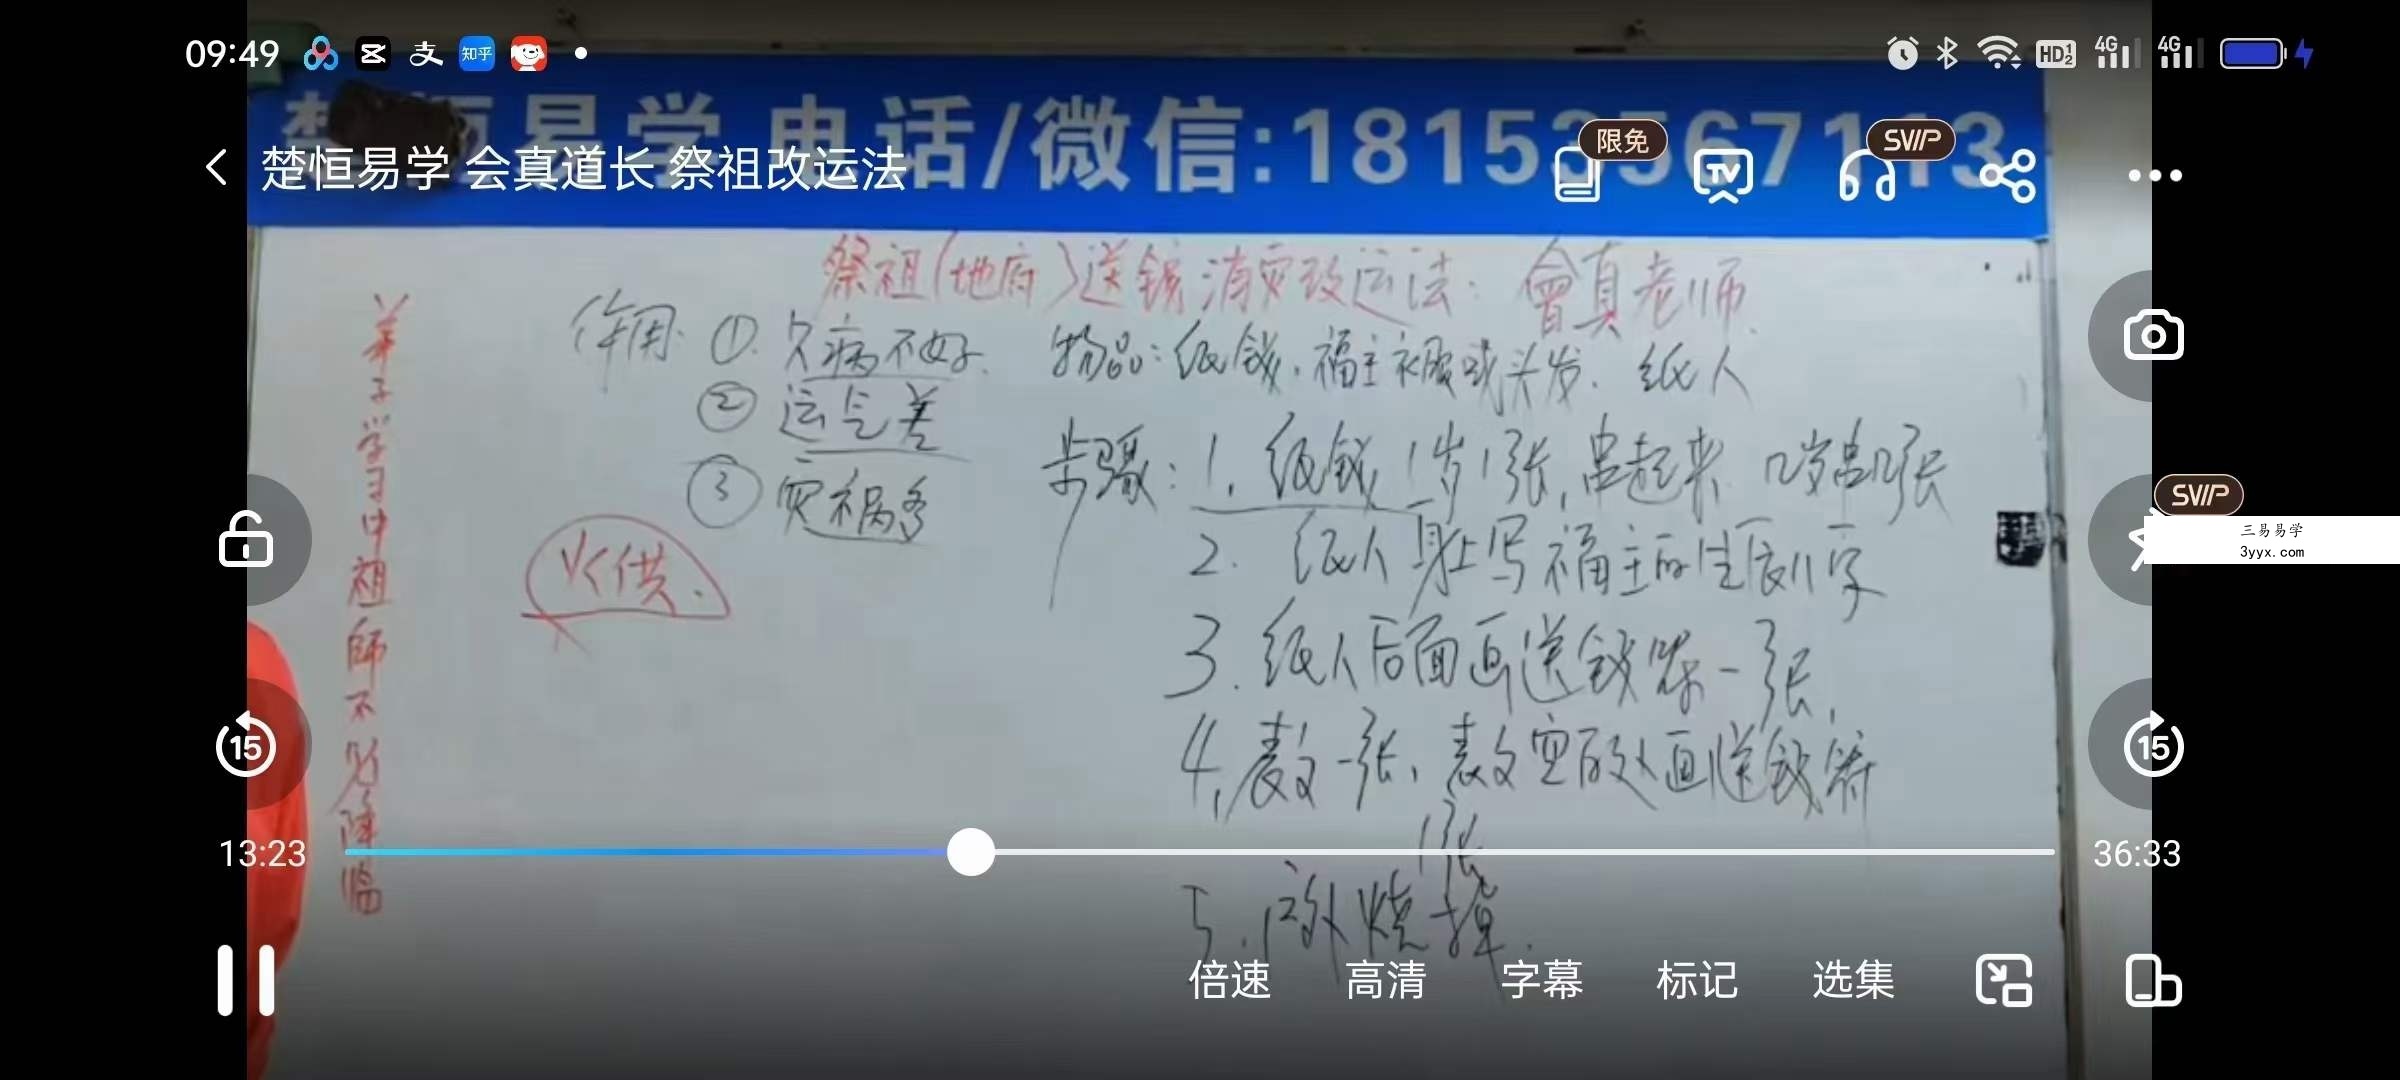 09:49
知乎
HD
4G
4G
易学 电话/微信:18153567113
楚恒易学 会真道长 祭祖改运法
限免
TV
SVIP
祭祖(地府)送钱消灾改运法: 會真老师
弟子学习中祖師不必降临
作用: ①. 久病不好.
② 运气差
③ 灾祸多
物品:纸钱.福主衣服或头发.纸人
步骤:1.纸钱1岁1张,串起来 几岁串几张
2. 纸人身上写福主的生辰八字
3.纸人后面画送钱符一张,
4,表文一张,表文空的处画送钱符
1张
5.
烧掉.
SVIP
三易易学
3yyx.com
15
15
13:23
36:33
倍速
高清
字幕
标记
选集